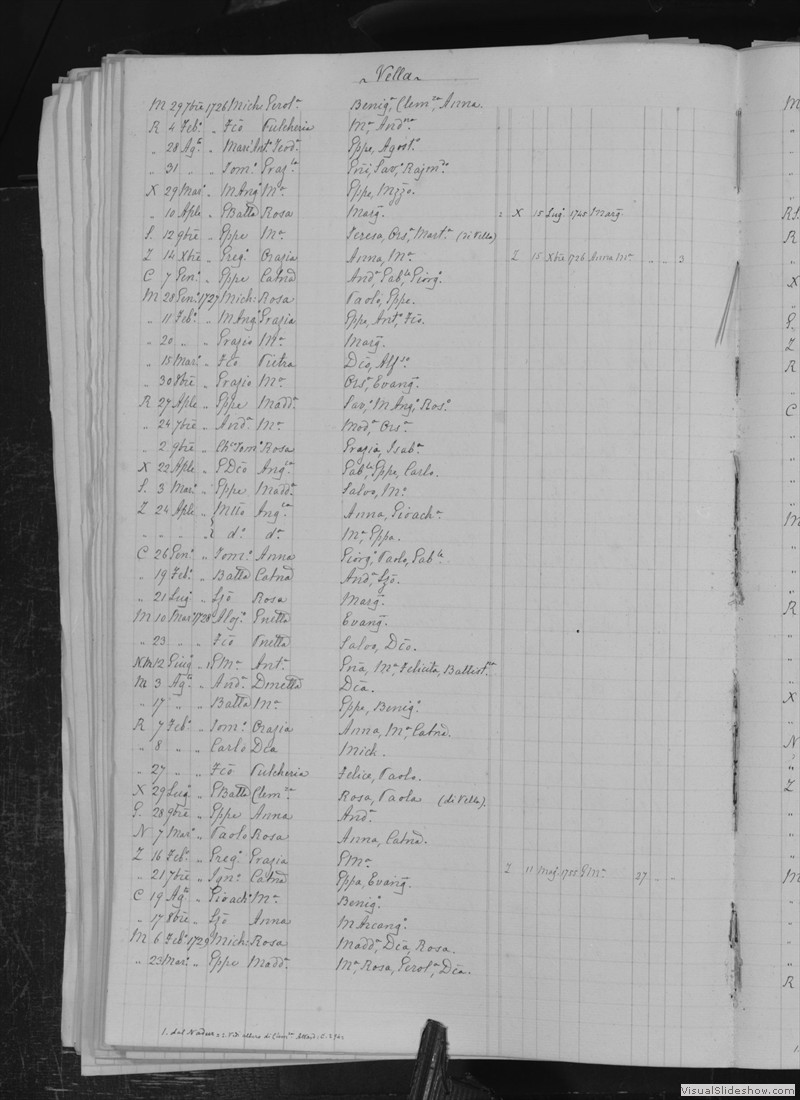 ~ Vella ~
M 29 7bre 1726 Mich Gerol.ª Benig.ª, Clem.za, Anna.
R 4 Feb.º „ Fcō Pulcheria M.ª, And.na
„ 28 Ag.º „ Mari Ant.º Teod.ª Gppe, Agost.º
„ 31 „ „ Tom.º Graz.la Gni, Sav.ª, Rajmd.º
X 29 Mar.º „ M Ang.º M.ª Gppe, Mzzo.
„ 10 Aple „ GBatta Rosa Marg. 2 X 15 Lug. 1745 Marg.
S. 12 9bre „ Gppe M.ª Teresa, Ors.ª, Mart.ª (di Vella)
Z 14 Xbre „ Greg.º Grazia Anna, M.ª Z 15 Xbre 1726 Anna M.ª „ „ 3
C 7 Gen.º „ Gppe Catnā And.ª, Gab.la, Giorg.ª
M 28 Gen.º 1727 Mich: Rosa Paolo, Gppe.
„ 11 Feb.º „ M Ang.º Grazia Gppe, Ant.º, Fcō.
„ 20 „ „ Grazio M.ª Marg.
„ 15 Mar.º „ Fcō Pietra Dcō, Alf.so
„ 30 8bre „ Grazio M.ª Ors.ª, Evang.
R 27 Aple „ Gppe Madd.ª Sav.ª, M Ang.º, Ros.º
„ 24 7bre „ And.ª M.ª Mod.ª, Ors.ª
„ 2 9bre „ Ch.º Tom.º Rosa Grazia, Isab.ª
X 22 Aple „ GDcō Ang.la Gab.la, Gppe, Carlo.
S. 3 Mar.º „ Gppe Madd.ª Salvo, M.º
Z 24 Aple „ Mttō Ang.la Anna, Gioach.º
„ „ „ „ d.º d.ª M.ª, Gppa.
C 26 Gen.º „ Tom.º Anna Giorg.ª, Paolo, Gab.la
„ 19 Feb.º „ Batta Catnā And.ª, Lzō.
„ 21 Lug. „ Lzō Rosa Marg.
M 10 Mar.º 1728 Aloj.º Gnetta Evang.
„ 23 „ „ Fcō Pnetta Salvo, Dcō.
12 Giug. „ 1 GM.ª Ant.ª Gnā, M.ª, Felicita, Battist.ª
M 3 Ag.º „ And.ª Dnetta Dcā.
„ 17 „ „ Batta M.ª Gppa, Benig.ª
R 7 Feb.º „ Tom.º Grazia Anna, M.ª, Catnā.
„ 8 „ „ Carlo Dcā Mich.
„ 27 „ „ Fcō Pulcheria Felice, Paolo.
X 29 Lug. „ GBatta Clem.za Rosa, Paola (di Vella).
S. 28 9bre „ Gppe Anna And.ª
N 7 Mar.º „ Paolo Rosa Anna, Catnā.
Z 16 Feb.º „ Greg.º Grazia GM.ª Z 11 Mag. 1755 GM.ª 27 „ „
„ 21 7bre „ Ign.º Catnā Gppa, Evang.
C 19 Ag.º „ Gioach.º M.ª Benig.ª
„ 17 8bre „ Lzō Anna M Arcang.ª
M 6 Feb.º 1729 Mich: Rosa Madd.ª, Dcā, Rosa.
„ 23 Mar.º „ Gppe Madd.ª M.ª, Rosa, Gerol.ª, Dcā.
1. dal Nadur
VisualSlideshow.com